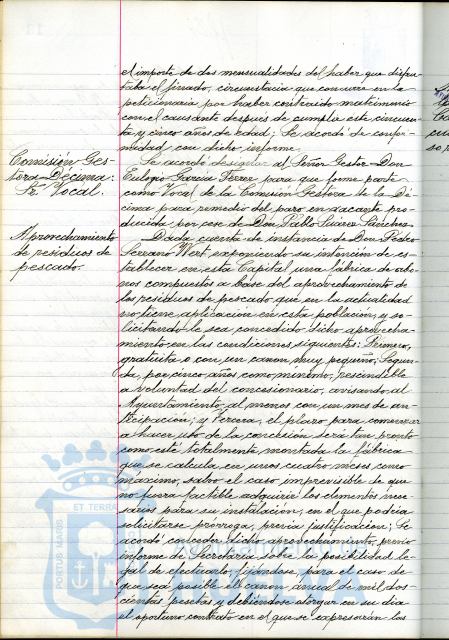 el importe de dos mensualidades del haber que disfru-
taba el finado, circunstancia que concurre en la
peticionaria por haber contraido matrimonio
con el causante despues de cumplir este cincuen-
ta y cinco años de edad; Se acordó de confor-
midad con dicho informe.
Comisión Ges-
tora Décima:
Sr. Vocal.
Se acordó designar al Señor Gestor Don
Eulogio García Ferrer para que forme parte
como Vocal de la Comisión Gestora de la Dé-
cima para remedio del paro en vacante pro-
ducida por cese de Don Pablo Suarez Sánchez
Aprovechamiento
de residuos de
pescado.
Dada cuenta de instancia de Don Pedro
Serrano Wert exponiendo su intención de es-
tablecer en esta Capital una fábrica de abo-
nos compuestos a base del aprovechamiento de
los residuos de pescado que en la actualidad
no tiene aplicación en esta población, y so-
licitando le sea concedido dicho aprovecha-
miento en las condiciones siguientes: Primero,
gratuita o con un canon muy pequeño; Segun-
da, por cinco años como mínimo, rescindible
a voluntad del concesionario, avisando al
Ayuntamiento al menos con un mes de an-
ticipación; y Tercera, el plazo para comenzar
a hacer uso de la concesión será tan pronto
como esté totalmente montada la fábrica
que se calcula en unos cuatro meses como
máximo, salvo el caso imprevisible de que
no fuera factible adquirir los elementos nece-
sarios para su instalación, en el que podría
solicitarse prórroga, previa justificación; Se
acordó conceder dicho aprovechamiento, previo
informe de Secretaría sobre la posibilidad le-
gal de efectuarlo, fijándose para el caso de
que sea posible el canon anual de mil dos-
cientas pesetas y debiéndose otorgar en su dia
el oportuno contrato en el que se expresarán los
PORTUS MARIS
ET TERRA
HUELVA